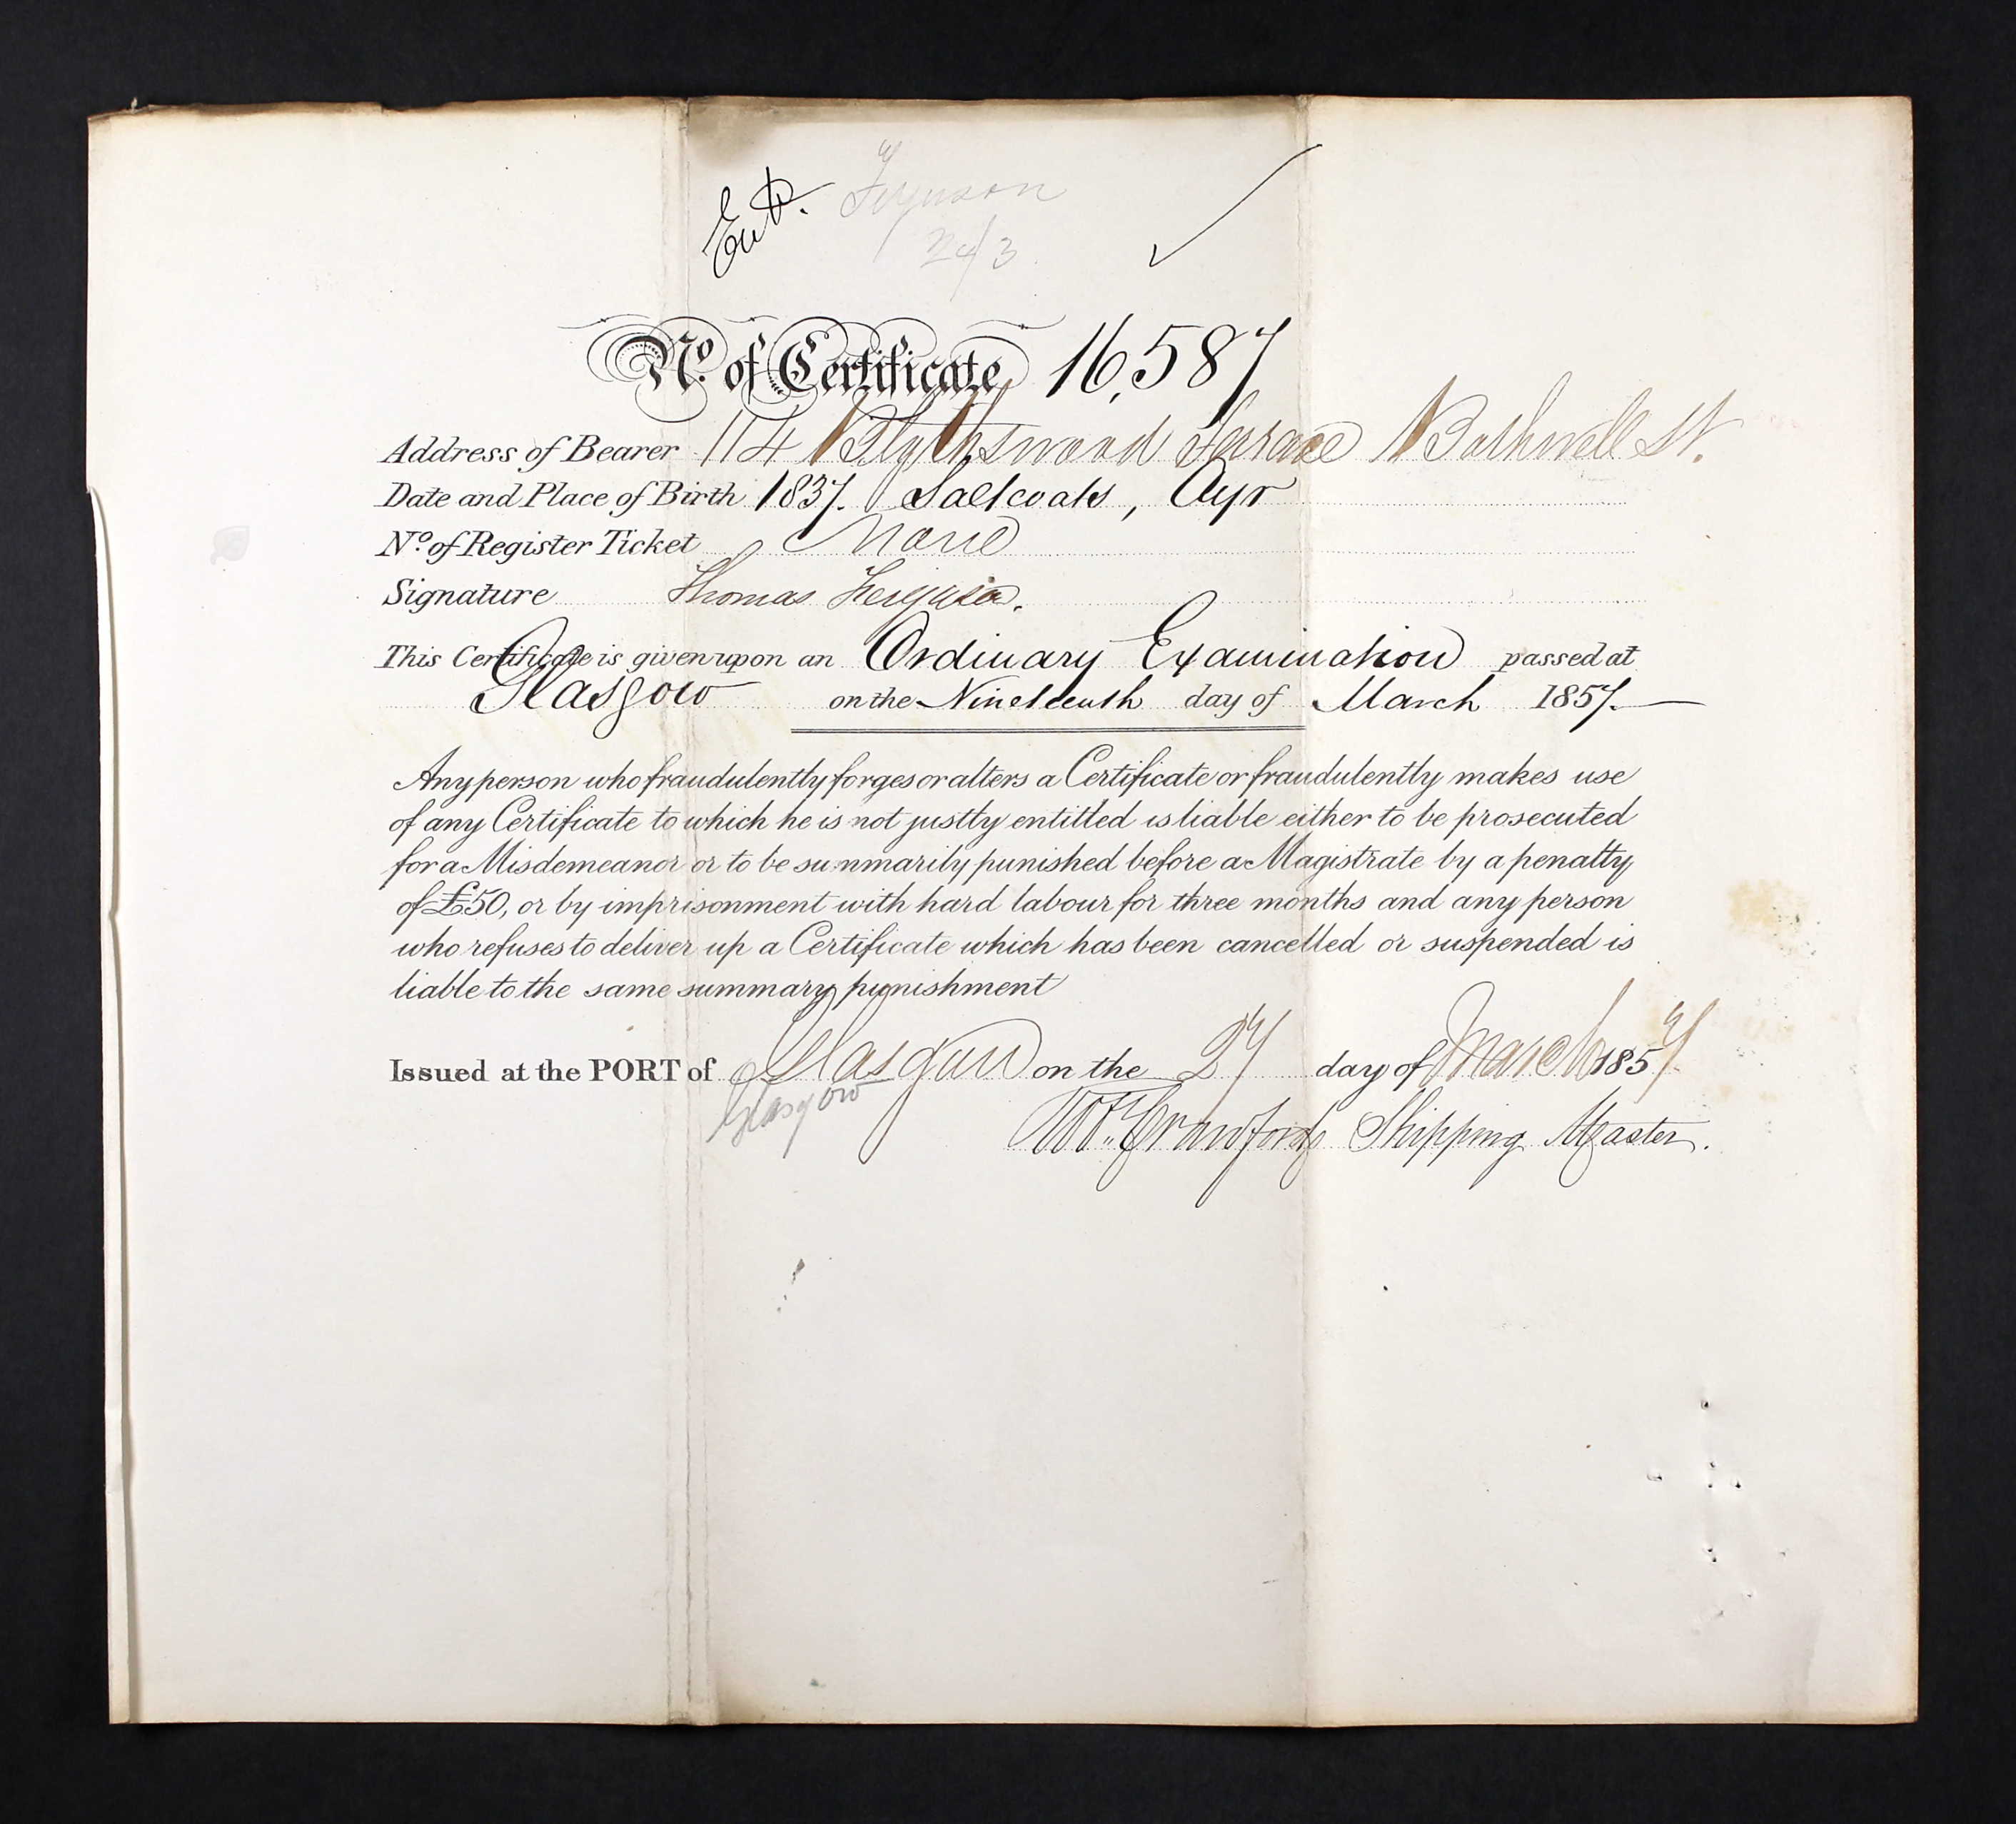 Entd. Ferguson
24/3
No. of Certificate 16,587
Address of Bearer 114 Blythswood Terrace Bothwell St.
Date and Place of Birth 1837. Saltcoats, Ayr
No. of Register Ticket None
Signature Thomas Ferguson.
This Certificate is given upon an Ordinary Examination passed at
Glasgow on the Nineteenth day of March 1857.
Any person who fraudulently forges or alters a Certificate or fraudulently makes use
of any Certificate to which he is not justly entitled is liable either to be prosecuted
for a Misdemeanor or to be summarily punished before a Magistrate by a penalty
of £50, or by imprisonment with hard labour for three months and any person
who refuses to deliver up a Certificate which has been cancelled or suspended is
liable to the same summary punishment
Issued at the PORT of Glasgow on the 27 day of March 1857.
Glasgow
Wm. Crawford Shipping Master.